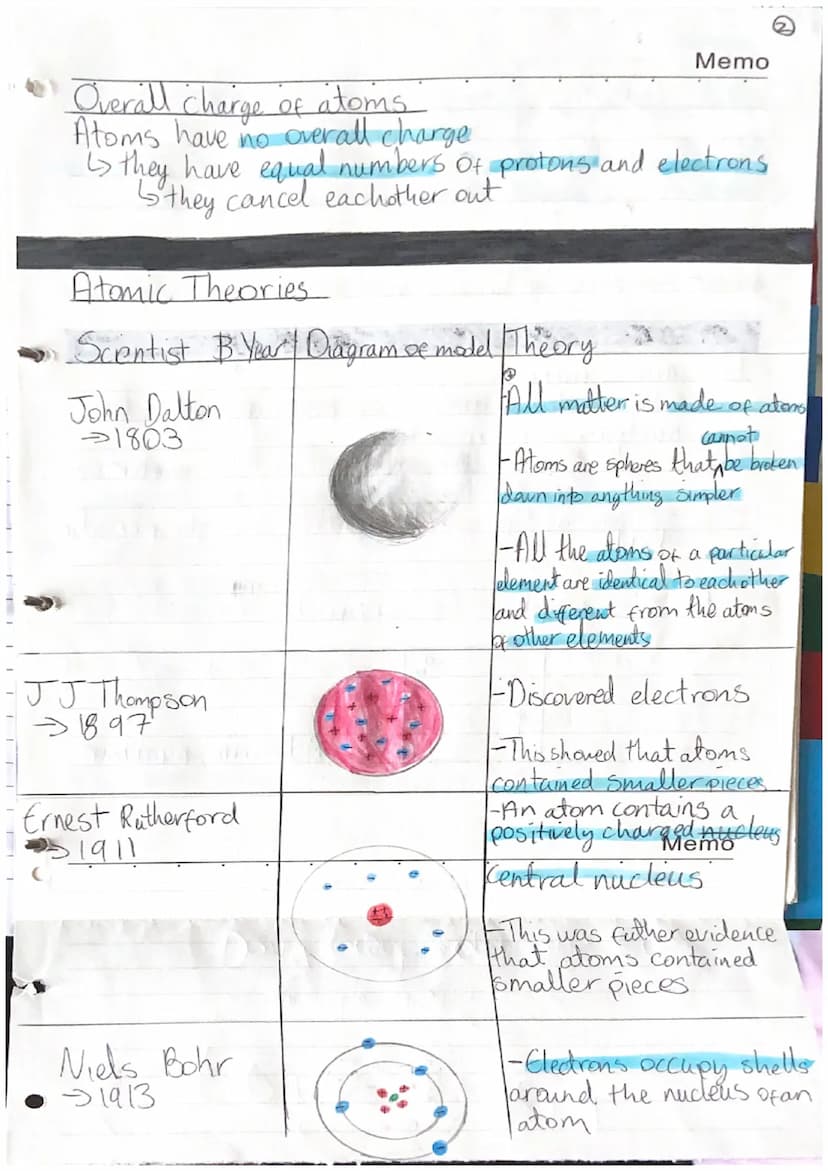 2
Memo
Overall charge of atoms
Atoms have no overall charge
↳ they have equal numbers of protons and electrons
↳ they cancel eachother out
Atomic Theories
Scientist & Year
Diagram of model
Theory
John Dalton
→ 1803
- All matter is made of atoms
cannot
- Atoms are spheres that ʌ be broken
down into anything simpler
- All the atoms of a particular
element are identical to eachother
and different from the atoms
of other elements
J J Thompson
→ 1897
- Discovered electrons
- This showed that atoms
contained smaller pieces
Ernest Rutherford
→ 1911
- An atom contains a
positively charged nucleus
Memo
Central nucleus
- This was futher evidence
that atoms contained
smaller pieces
Niels Bohr
→ 1913
- Electrons occupy shells
around the nucleus of an
atom